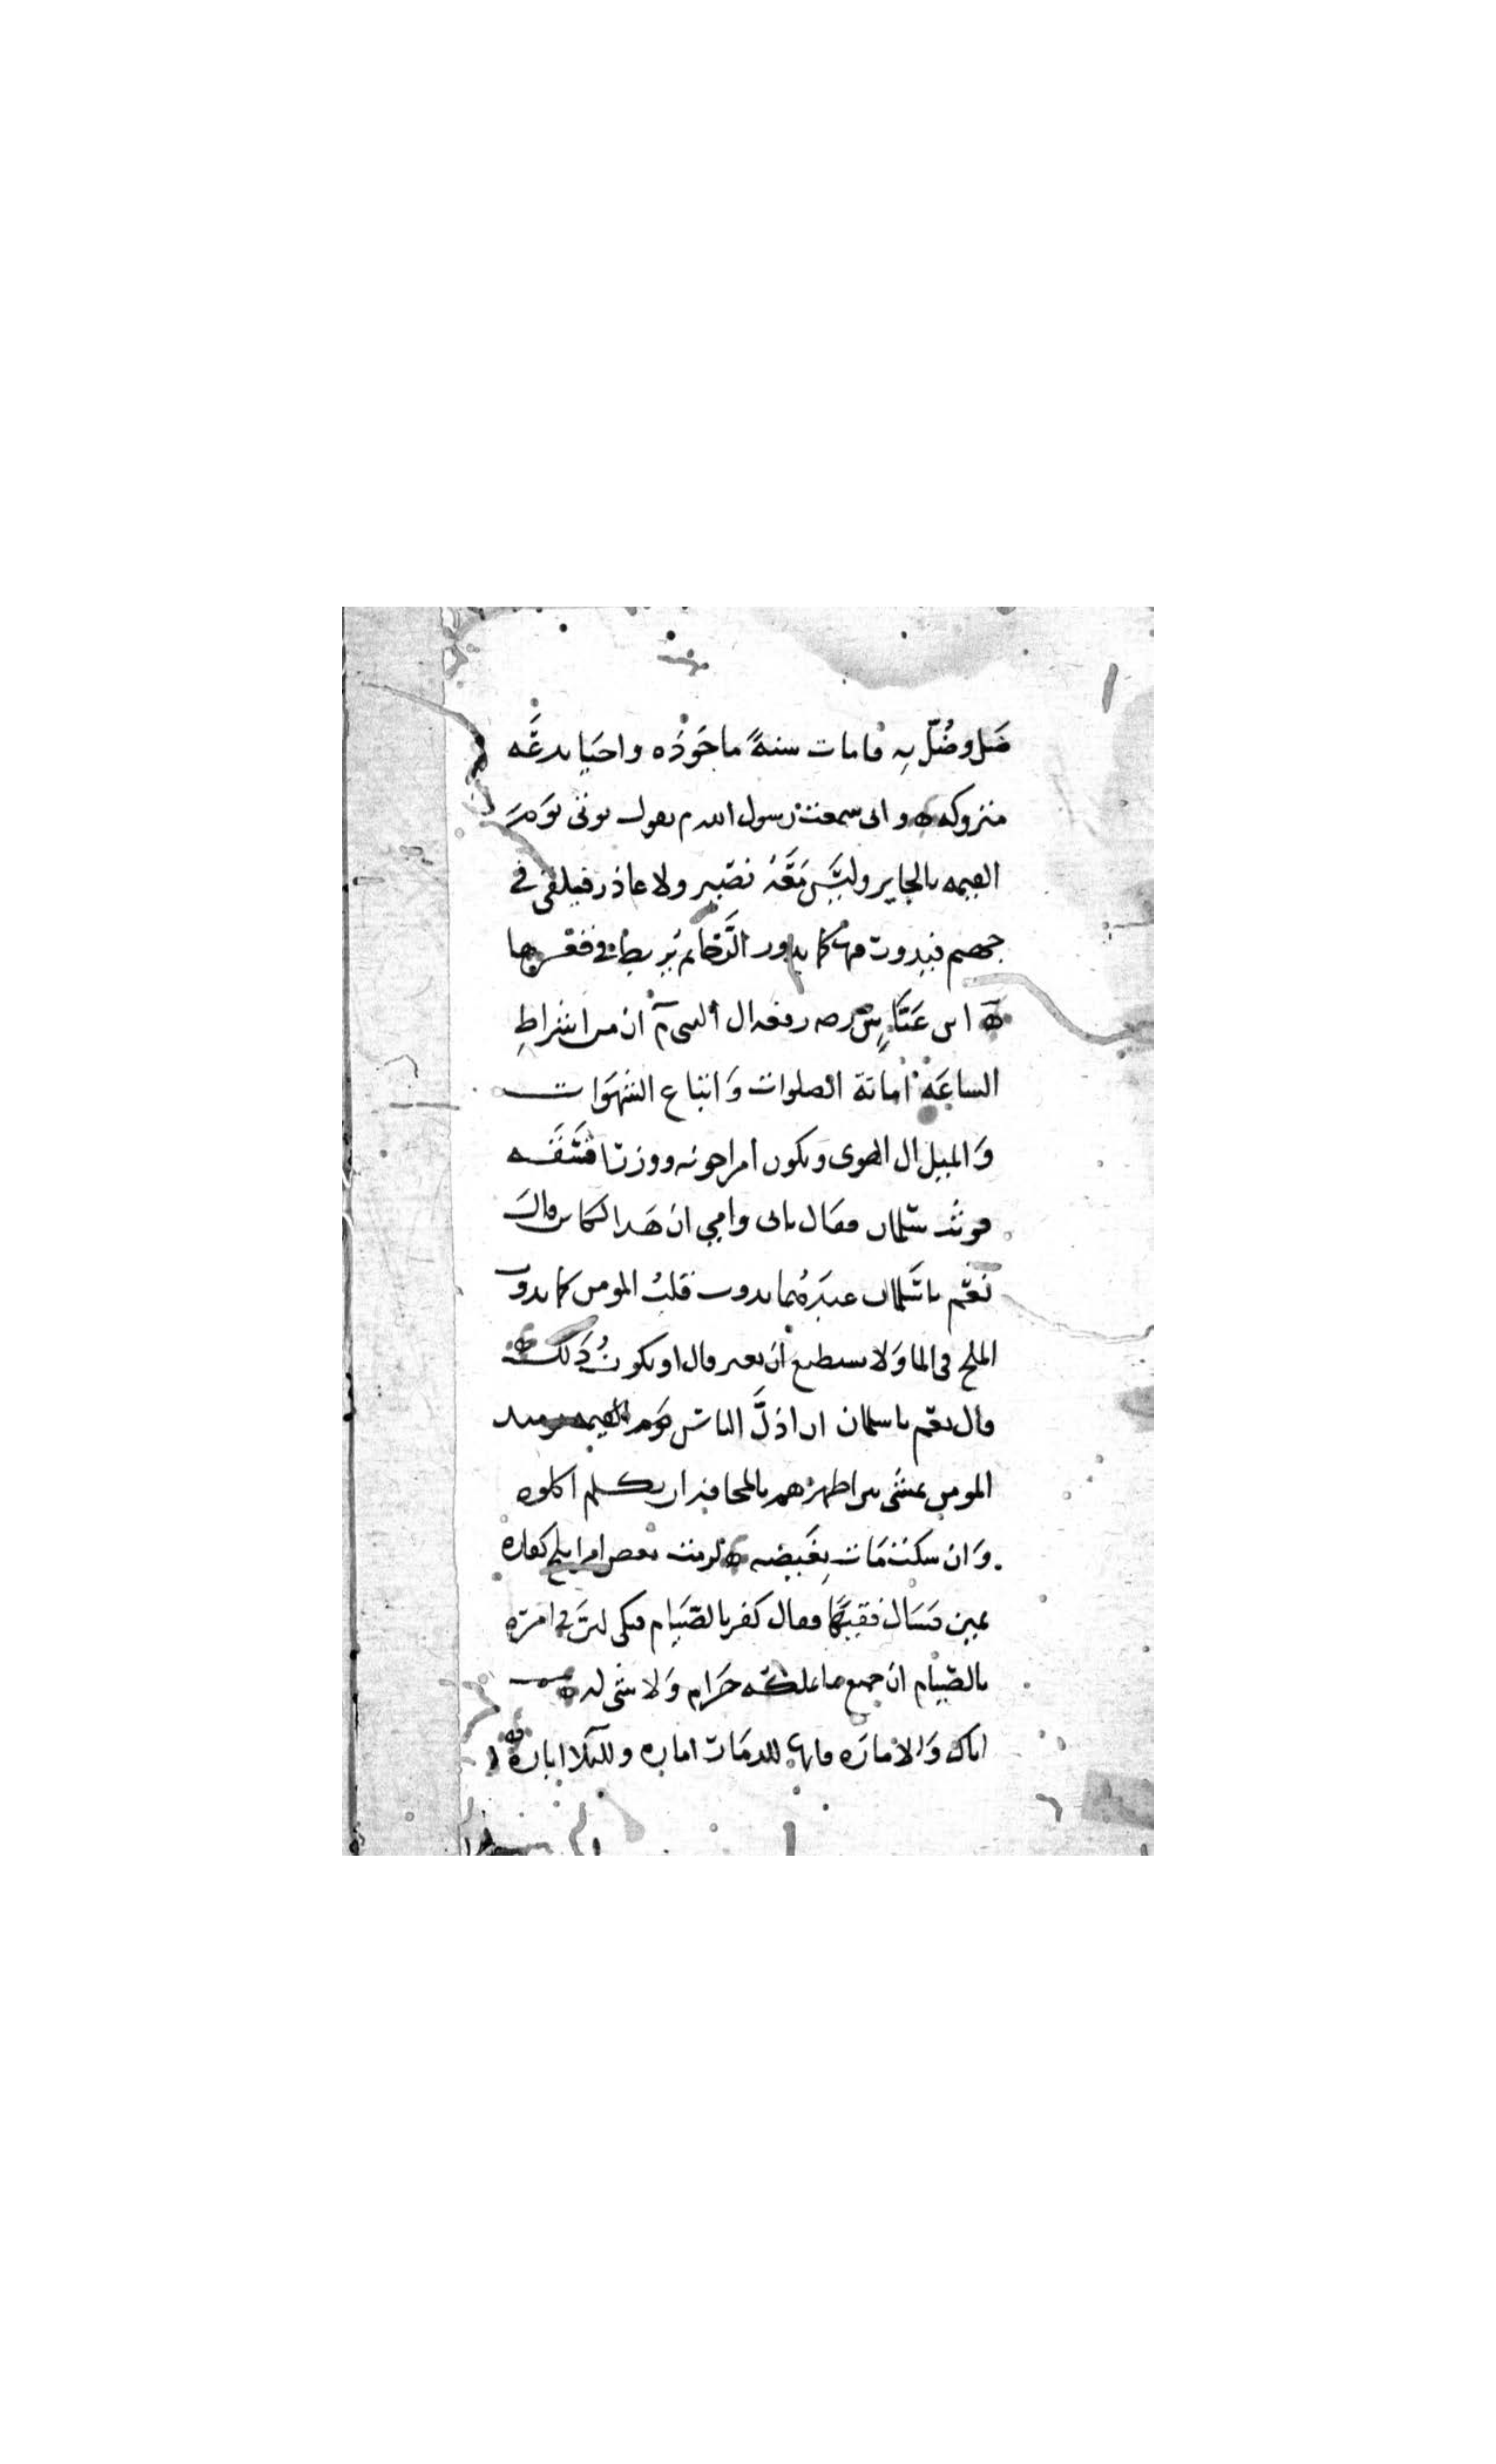 ضَل وضُلّ به فامات سنةً ماخوذه واحيا بدعَه
متروكه واني سمعت رسول الله م يقول يوتى يوم
القيمه بالجاير وليس معه نصير ولا عاذر فيلقى في
جهنم فيدور فيها كما يدور الرحا ثم يرتبط في قعرها
ابن عباس رصه رفعه ال النبي م ان من اشراط
الساعه اماتة الصلوات واتباع الشهوات
والميل ال الهوى ويكون امرا خونه ووزرا فسقه
فوثب سلمان فقال بابي وامي ان هذا لكاين قال
نعم يا سلمان عندها يذوب قلب المومن كما يذوب
الملح في الما ولا يستطيع ان يغير قال او يكون ذلك
قال نعم يا سلمان ان اذل الناس يومئذ
المومن يمشي بين اظهرهم بالمخافه ان تكلم اكلوه
وان سكت مات بغيضه لزمت بعض امرا بلخ كفاره
يمين فسال فقيها فقال كفر بالصيام فبكى لتر في امره
بالصيام ان جميع ما يملكه حرام ولا شي له
اياك والامارة فانها للدمار امارة وللبلا اباره